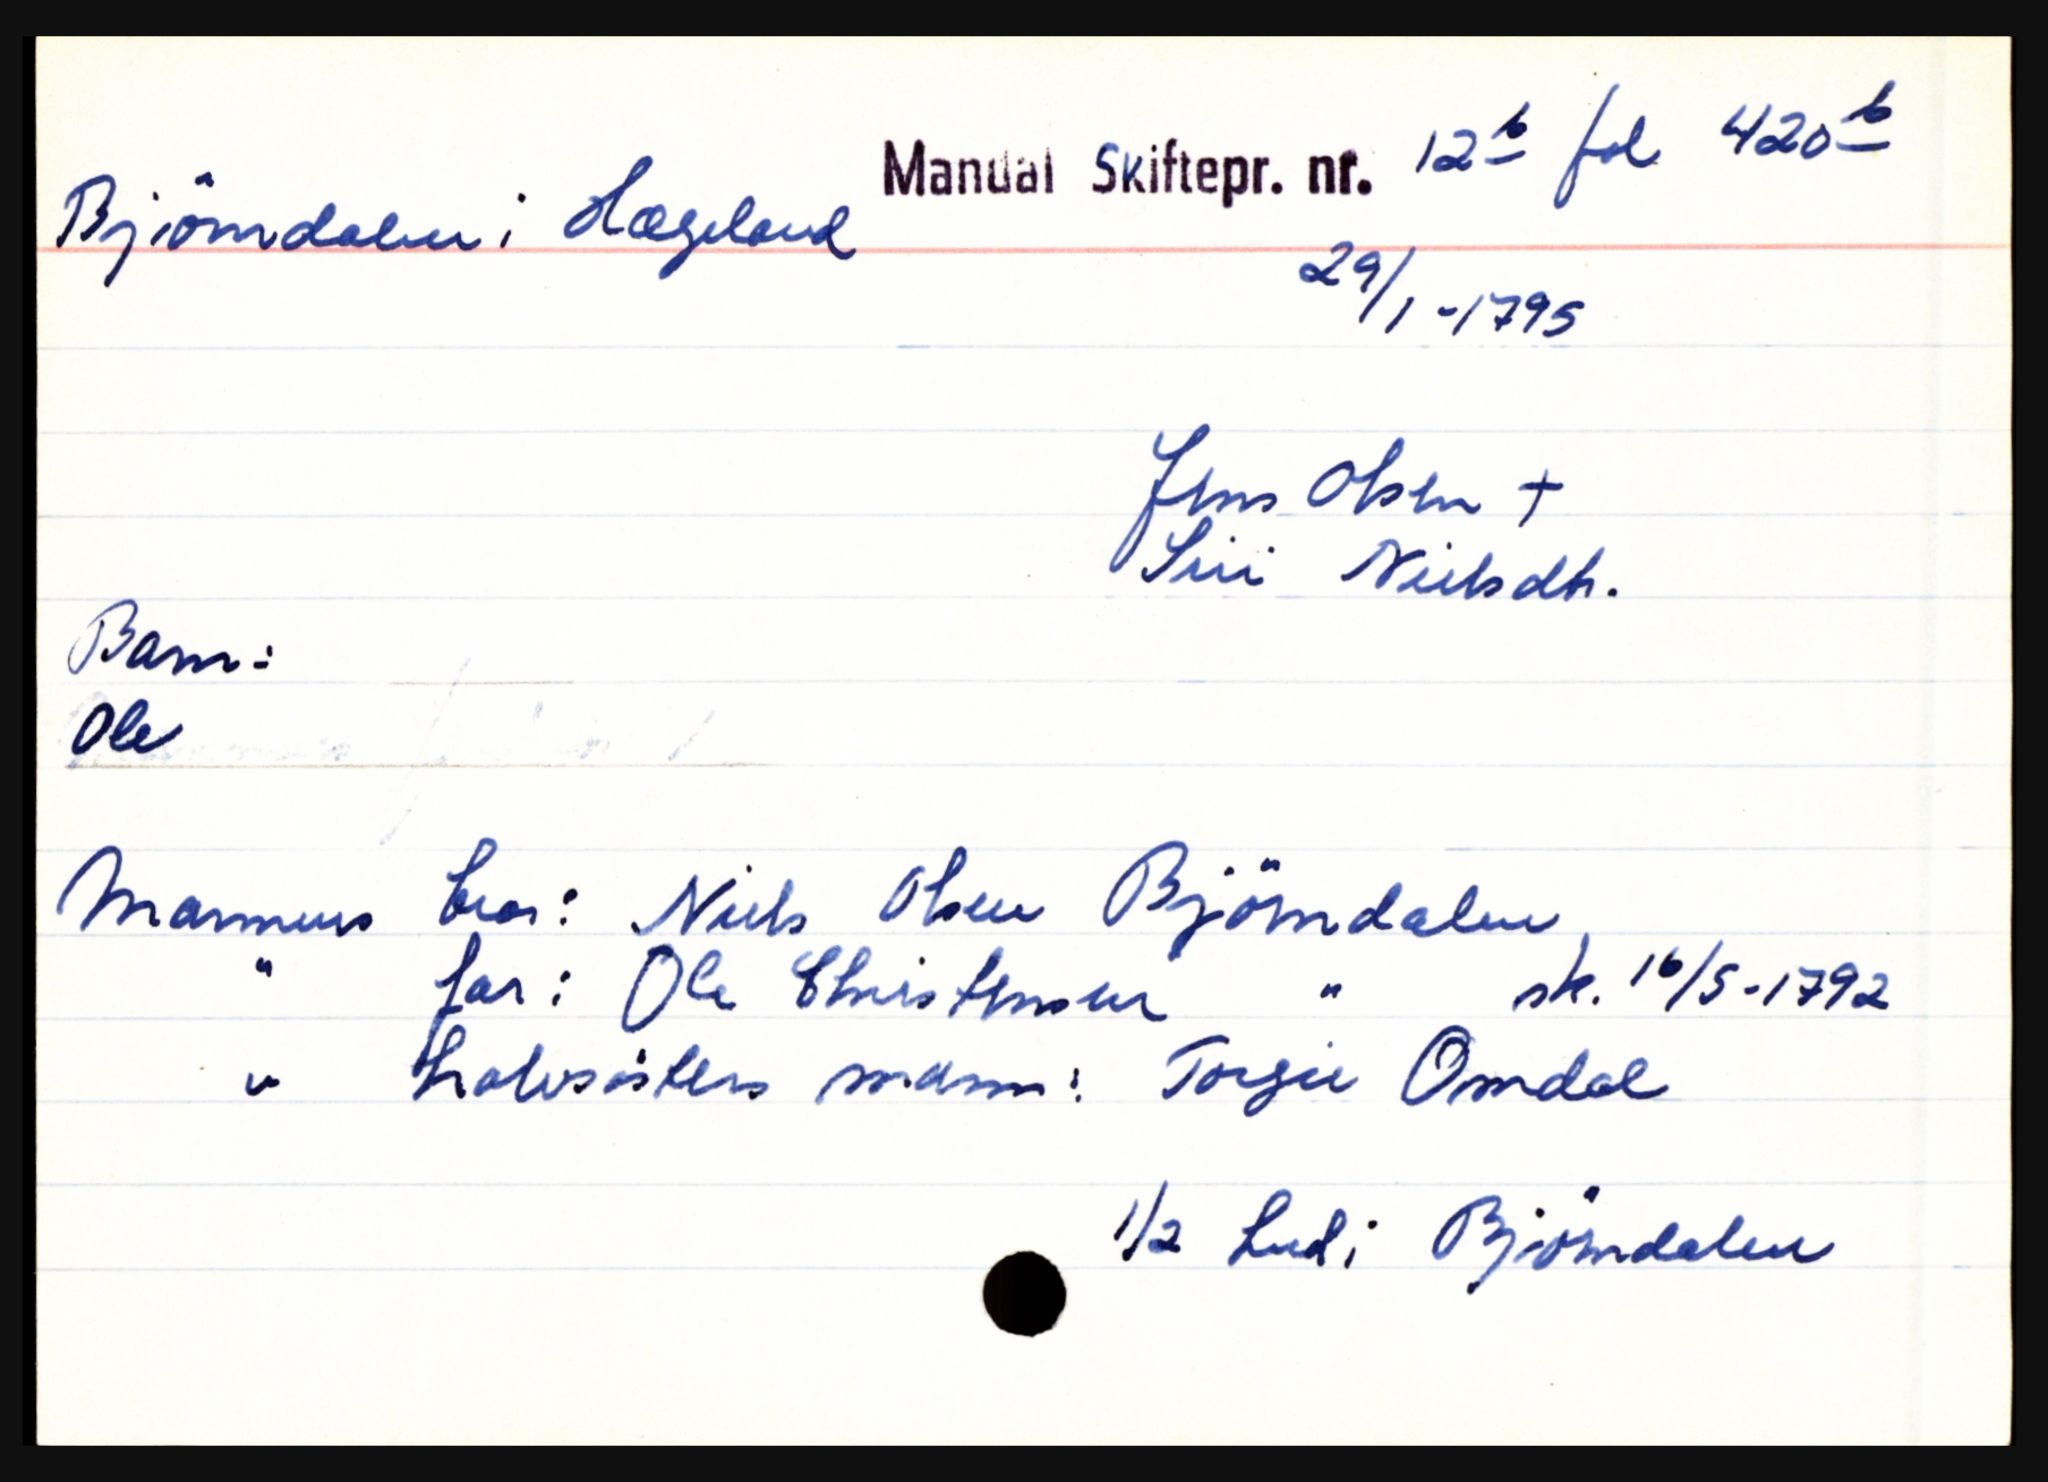 Manual Skiftepr. nr. 12b fol 420b
Bjömdalen i Hægeland
29/1-1795
Jens Olsen +
Siri Nielsdtr.
Barn:
Ole
Mannens bror: Niels Olsen Björndalen
" far: Ole Christensen " sk. 16/5-1792
" halvsösters mann: Torgie Omdal
1/2 hud i Björndalen